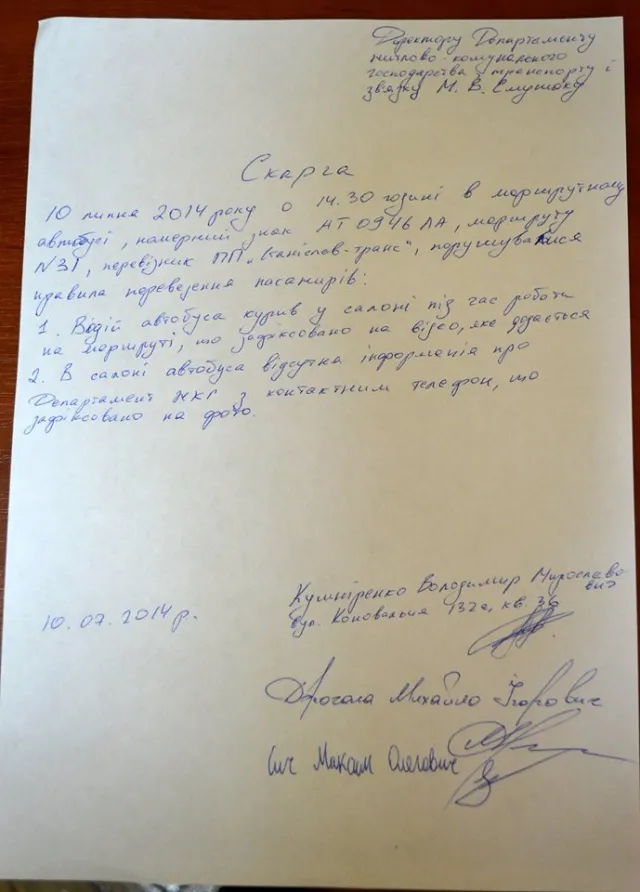 Директору Департаменту
житлово-комунального
господарства, транспорту і
звязку М. В. Смушаку
Скарга
10 липня 2014 року о 14.30 годині в маршрутному
автобусі, номерний знак АТ 0946 АА, маршруту
№31, перевізник ПП „Станіслав-транс“, порушувалися
правила перевезення пасажирів:
1. Водій автобуса курив у салоні під час роботи
на маршруті, що зафіксовано на відео, яке додається
2. В салоні автобуса відсутня інформація про
Департамент ЖКГ з контактним телефон, що
зафіксовано на фото.
10.07.2014 р.
Кушніренко Володимир Мирославович
вул. Коновальця 132а, кв. 38
Михайло Ігорович
Сич Максим Олегович